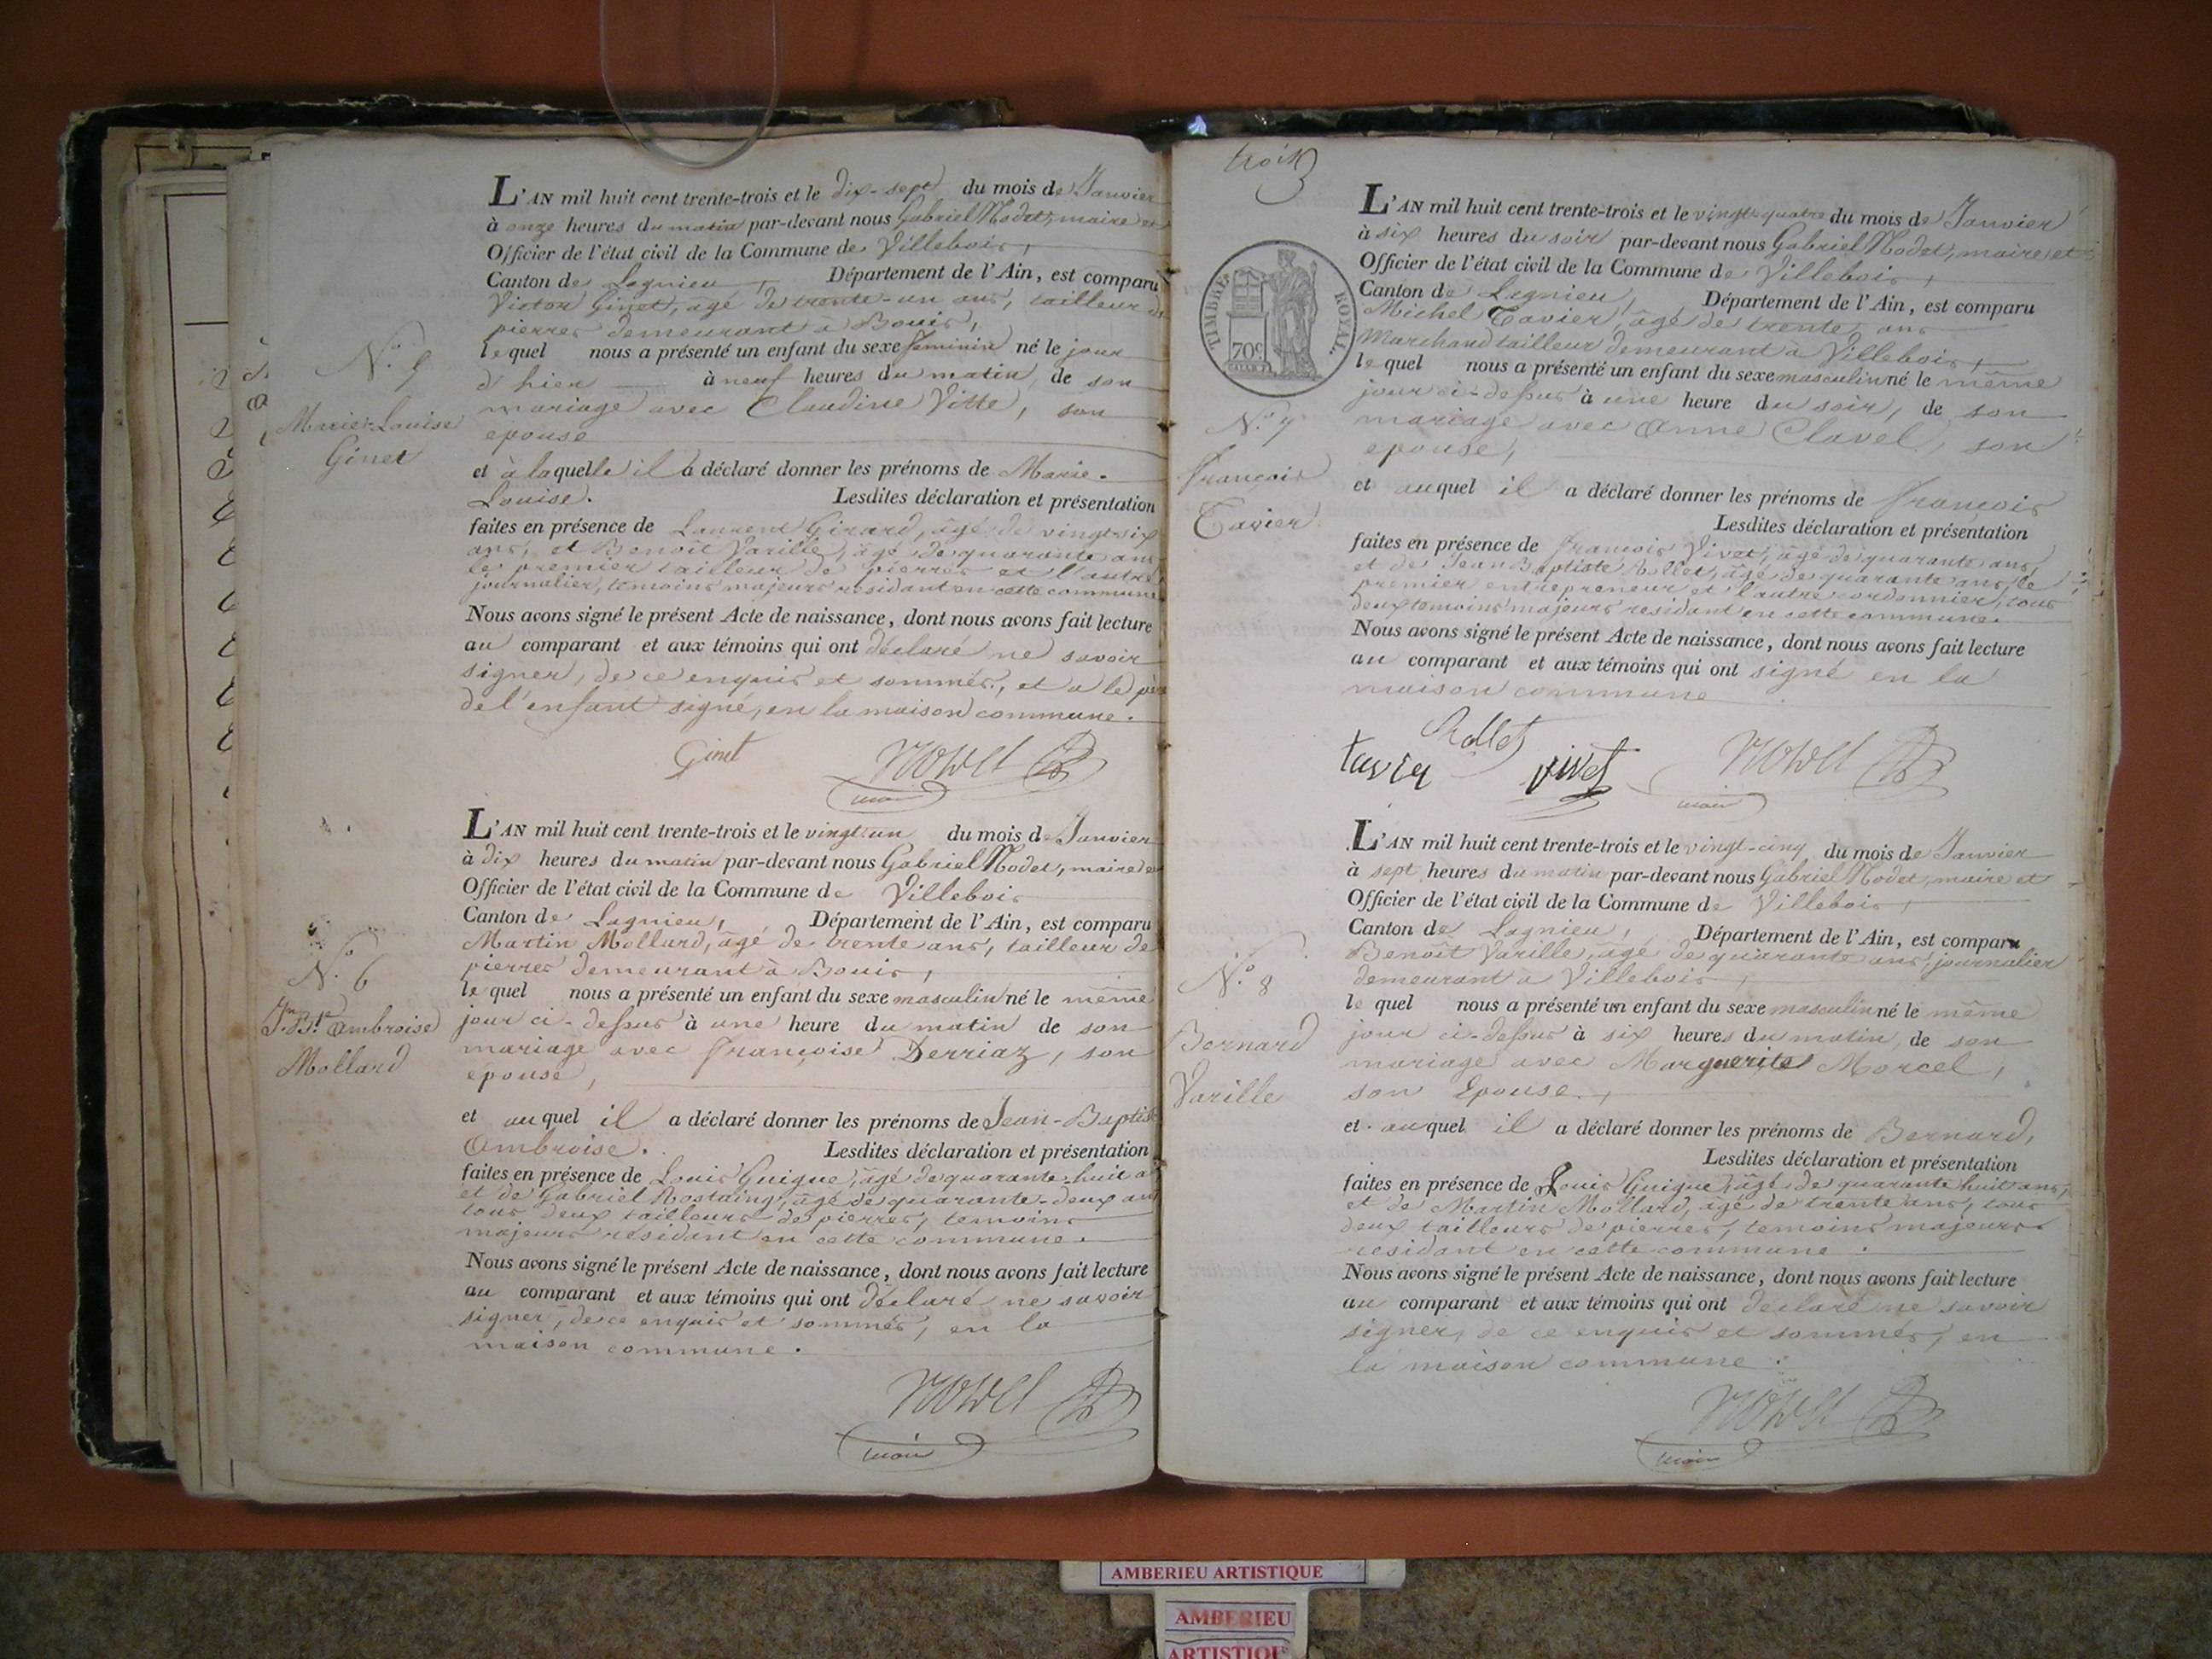 L'AN mil huit cent trente-trois et le dix-sept du mois de Janvier
à onze heures du matin par-devant nous Gabriel Nodet, maire et
Officier de l'état civil de la Commune de Villebois,
Canton de Lagnieu, Département de l'Ain, est comparu
Victor Ginet, agé de trente-un ans, tailleur de
pierres demeurant à Bouis,
lequel nous a présenté un enfant du sexe feminin né le jour
d'hier à neuf heures du matin, de son
mariage avec Claudine Vitte, son
epouse
et à laquelle il a déclaré donner les prénoms de Marie-
Louise. Lesdites déclaration et présentation
faites en présence de Laurent Girard, âgé de vingt-six
ans, et Benoît Varille, âgé de quarante ans
le premier tailleur de pierres et l'autre
journalier, temoins majeurs residant en cette commune
Nous avons signé le présent Acte de naissance, dont nous avons fait lecture
au comparant et aux témoins qui ont déclaré ne savoir
signer, de ce enquis et sommés, et a le père
de l'enfant signé, en la maison commune.
Ginet Nodet
maire
N.° 5
Marie-Louise
Ginet
L'AN mil huit cent trente-trois et le vingt-un du mois de Janvier
à dix heures du matin par-devant nous Gabriel Nodet, maire et
Officier de l'état civil de la Commune de Villebois
Canton de Lagnieu, Département de l'Ain, est comparu
Martin Mollard, âgé de trente ans, tailleur de
pierres demeurant à Bouis,
lequel nous a présenté un enfant du sexe masculin né le même
jour ci-dessus à une heure du matin de son
mariage avec françoise Derriaz, son
epouse,
et auquel il a déclaré donner les prénoms de Jean-Baptiste
Ambroise. Lesdites déclaration et présentation
faites en présence de Louis Guigue, âgé de quarante-huit a
et de Gabriel Rostaing, âgé de quarante-deux an
tous deux tailleurs de pierres, temoins
majeurs residant en cette commune.
Nous avons signé le présent Acte de naissance, dont nous avons fait lecture
au comparant et aux témoins qui ont déclaré ne savoir
signer, de ce enquis et sommés, en la
maison commune.
Nodet
maire
N.° 6
Jn Bte Ambroise
Mollard
trois
3
TIMBRE ROYAL.
70c
L'AN mil huit cent trente-trois et le vingt-quatre du mois de Janvier
à six heures du soir par-devant nous Gabriel Nodet, maire et
Officier de l'état civil de la Commune de Villebois,
Canton de Lagnieu, Département de l'Ain, est comparu
Michel Tavier, âgé de trente ans
Marchand tailleur demeurant à Villebois,
lequel nous a présenté un enfant du sexe masculin né le même
jour ci-dessus à une heure du soir, de son
mariage avec Anne Clavel, son
epouse,
et auquel il a déclaré donner les prénoms de françois
Lesdites déclaration et présentation
faites en présence de françois Vivet, âgé de quarante ans,
et de Jean Baptiste Rollet, âgé de quarante ans, le
premier entrepreneur et l'autre cordonnier, tous
deux temoins majeurs residant en cette commune.
Nous avons signé le présent Acte de naissance, dont nous avons fait lecture
au comparant et aux témoins qui ont signé en la
maison commune
Rollet
tavier vivet Nodet
maire
N.° 7
françois
Tavier
L'AN mil huit cent trente-trois et le vingt-cinq du mois de Janvier
à sept heures du matin par-devant nous Gabriel Nodet, maire et
Officier de l'état civil de la Commune de Villebois,
Canton de Lagnieu, Département de l'Ain, est comparu
Benoît Varille, âgé de quarante ans, journalier
demeurant à Villebois,
lequel nous a présenté un enfant du sexe masculin né le même
jour ci-dessus à six heures du matin, de son
mariage avec Marguerite Morcel,
son Epouse,
et auquel il a déclaré donner les prénoms de Bernard,
Lesdites déclaration et présentation
faites en présence de Louis Guigue, âgé de quarante huit ans,
et de Martin Mollard, âgé de trente ans, tous
deux tailleurs de pierres, temoins majeurs
residant en cette commune.
Nous avons signé le présent Acte de naissance, dont nous avons fait lecture
au comparant et aux témoins qui ont déclaré ne savoir
signer, de ce enquis et sommés, en
la maison commune.
Nodet
maire
N.° 8
Bernard
Varille
AMBERIEU ARTISTIQUE
AMBERIEU
ARTISTIQUE